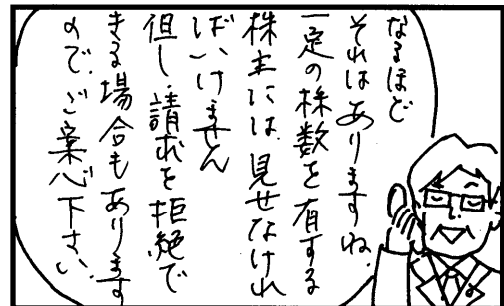 なるほど
それはありますね、
一定の株数を有する
株主には、見せなけれ
ばいけません
但し、請求を拒絶で
きる場合もあります
ので、ご案心下さい、